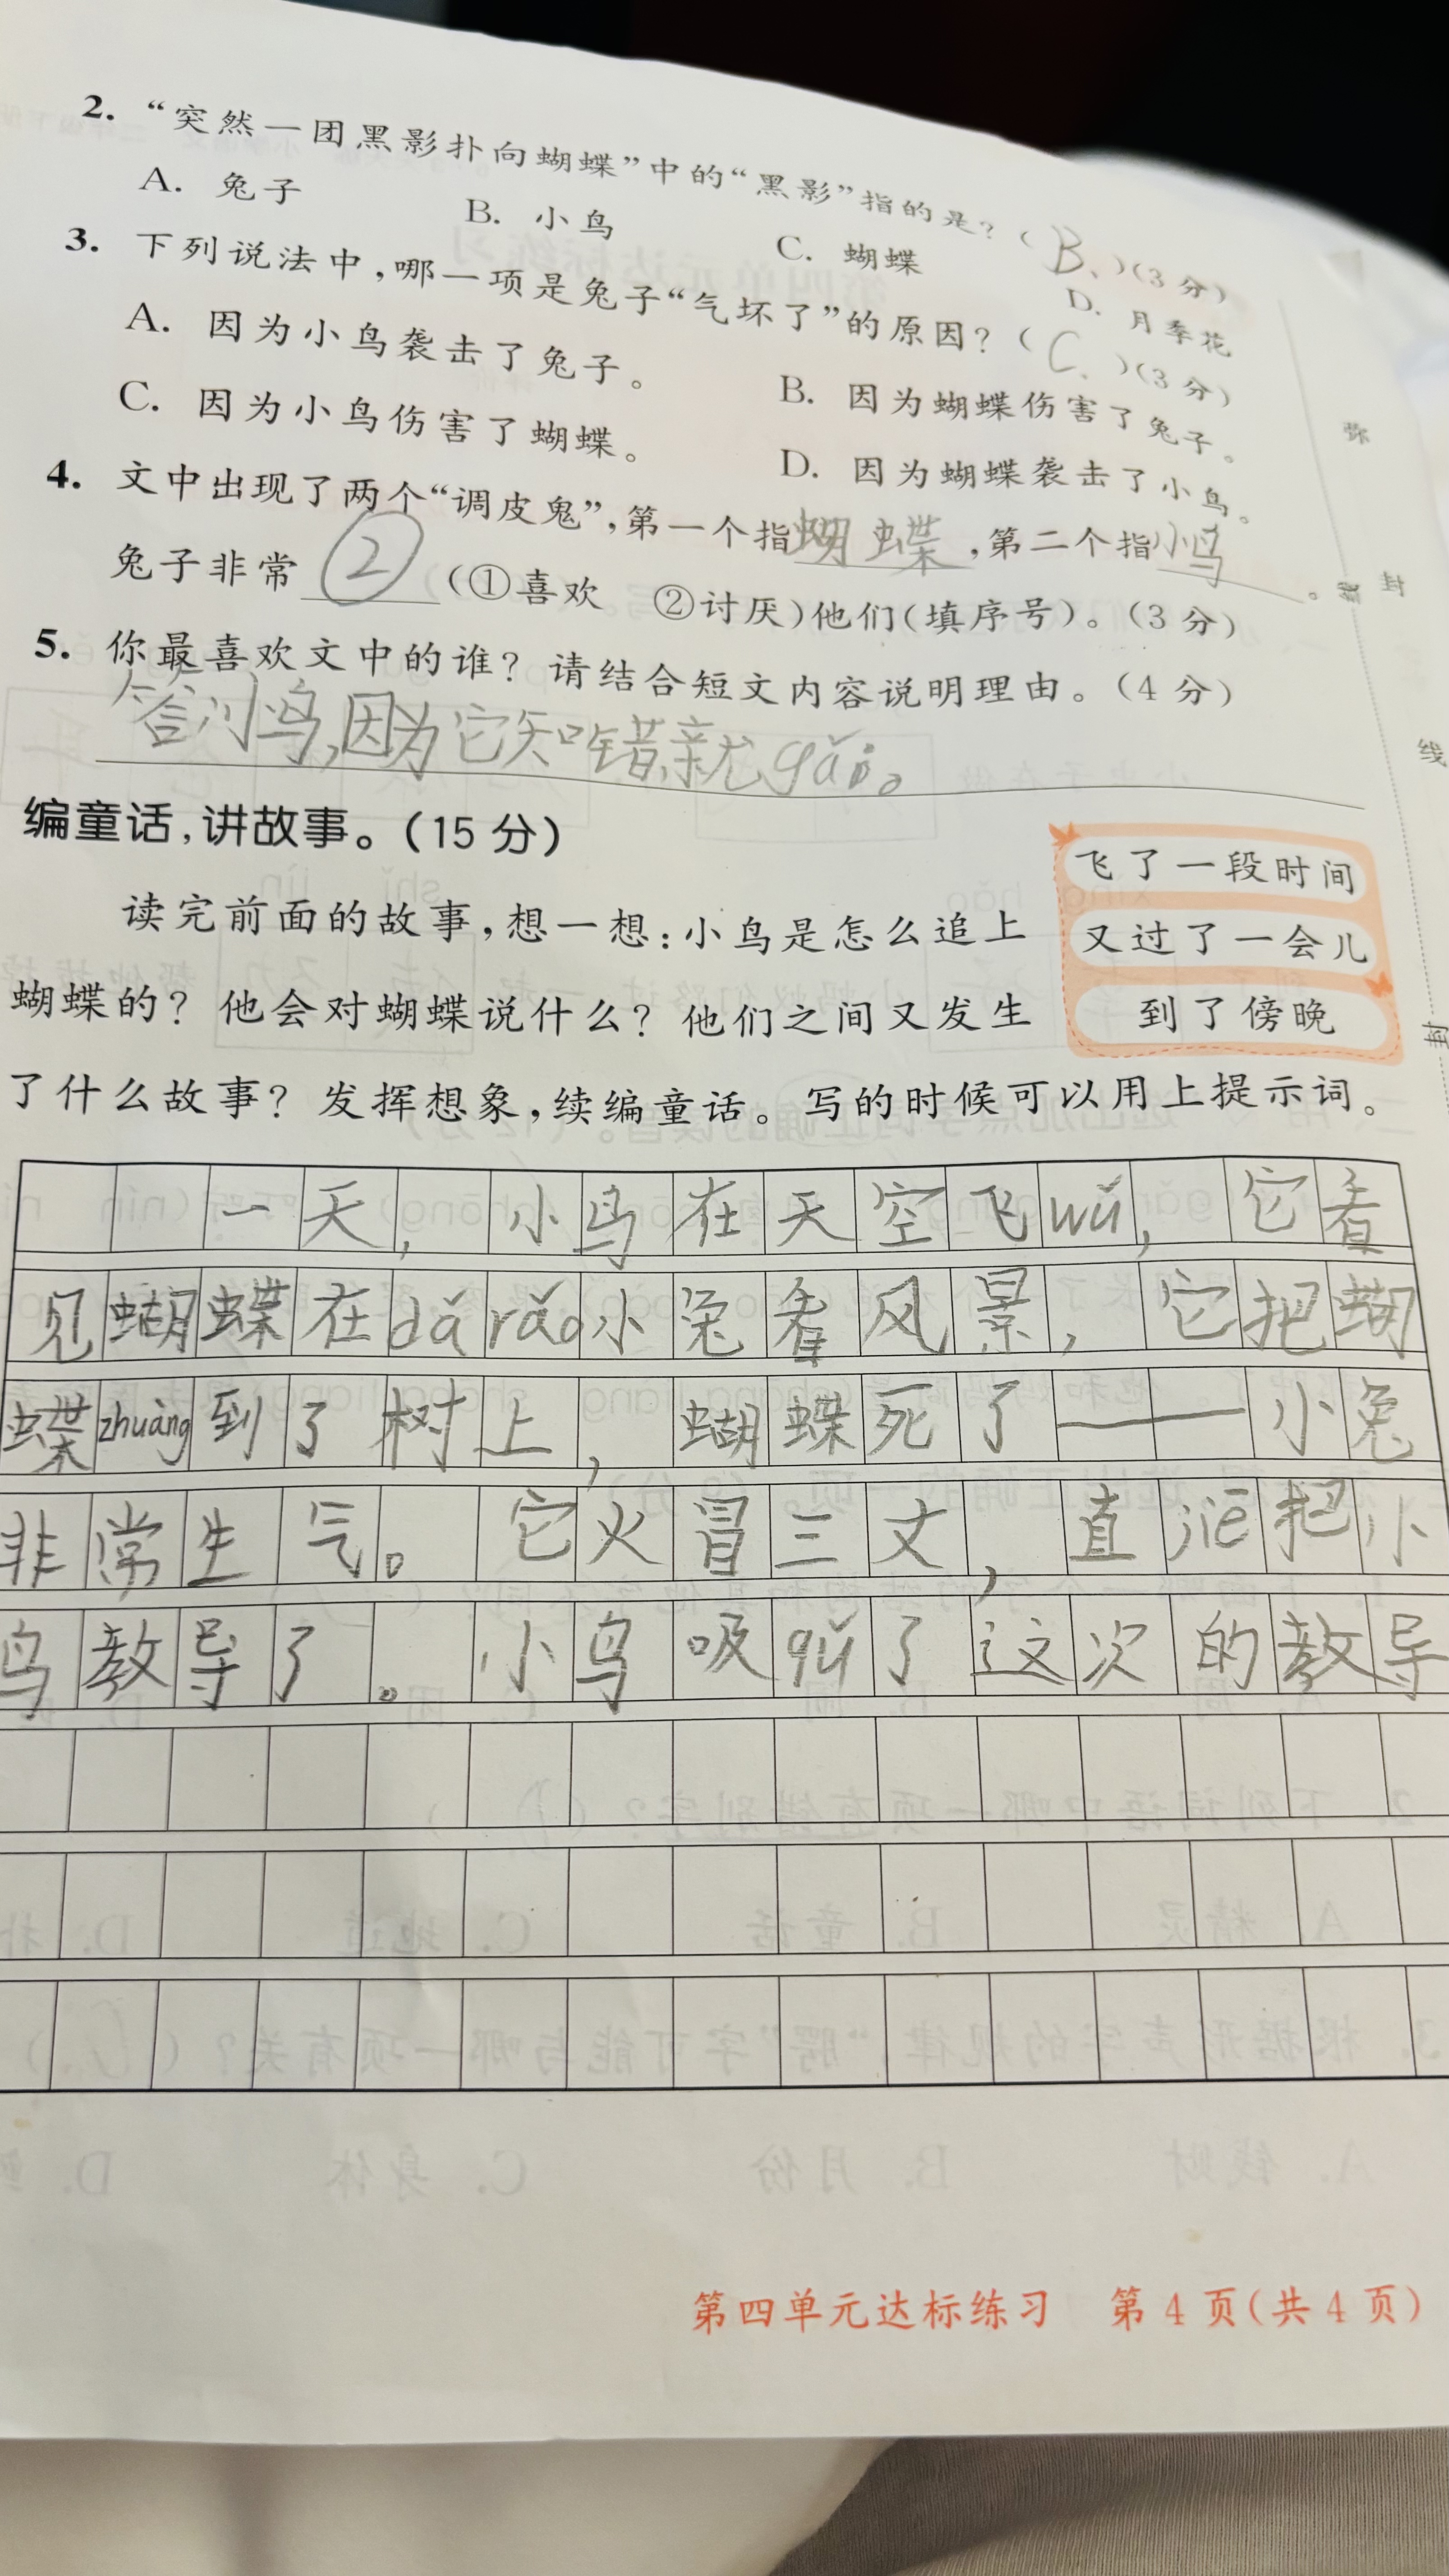 2. “突然一团黑影扑向蝴蝶”中的“黑影”指的是?( B、)(3分)
A. 兔子 B. 小鸟 C. 蝴蝶 D. 月季花
3. 下列说法中,哪一项是兔子“气坏了”的原因?( C、)(3分)
A. 因为小鸟袭击了兔子。 B. 因为蝴蝶伤害了兔子。
C. 因为小鸟伤害了蝴蝶。 D. 因为蝴蝶袭击了小鸟。
4. 文中出现了两个“调皮鬼”,第一个指蝴蝶,第二个指小鸟。
兔子非常②(①喜欢 ②讨厌)他们(填序号)。(3分)
5. 你最喜欢文中的谁? 请结合短文内容说明理由。(4分)
答:小鸟,因为它知错就gǎi。
编童话,讲故事。(15分)
读完前面的故事,想一想:小鸟是怎么追上
蝴蝶的? 他会对蝴蝶说什么? 他们之间又发生
了什么故事? 发挥想象,续编童话。写的时候可以用上提示词。
飞了一段时间
又过了一会儿
到了傍晚
弥
封
线
封
一天,小鸟在天空飞wǔ,它看
见蝴蝶在dǎ rǎo小兔看风景,它把蝴
蝶zhuàng到了树上,蝴蝶死了——小兔
非常生气。它火冒三丈,直jiē把小
鸟教导了。小鸟吸qǔ了这次的教导
第四单元达标练习 第4页(共4页)